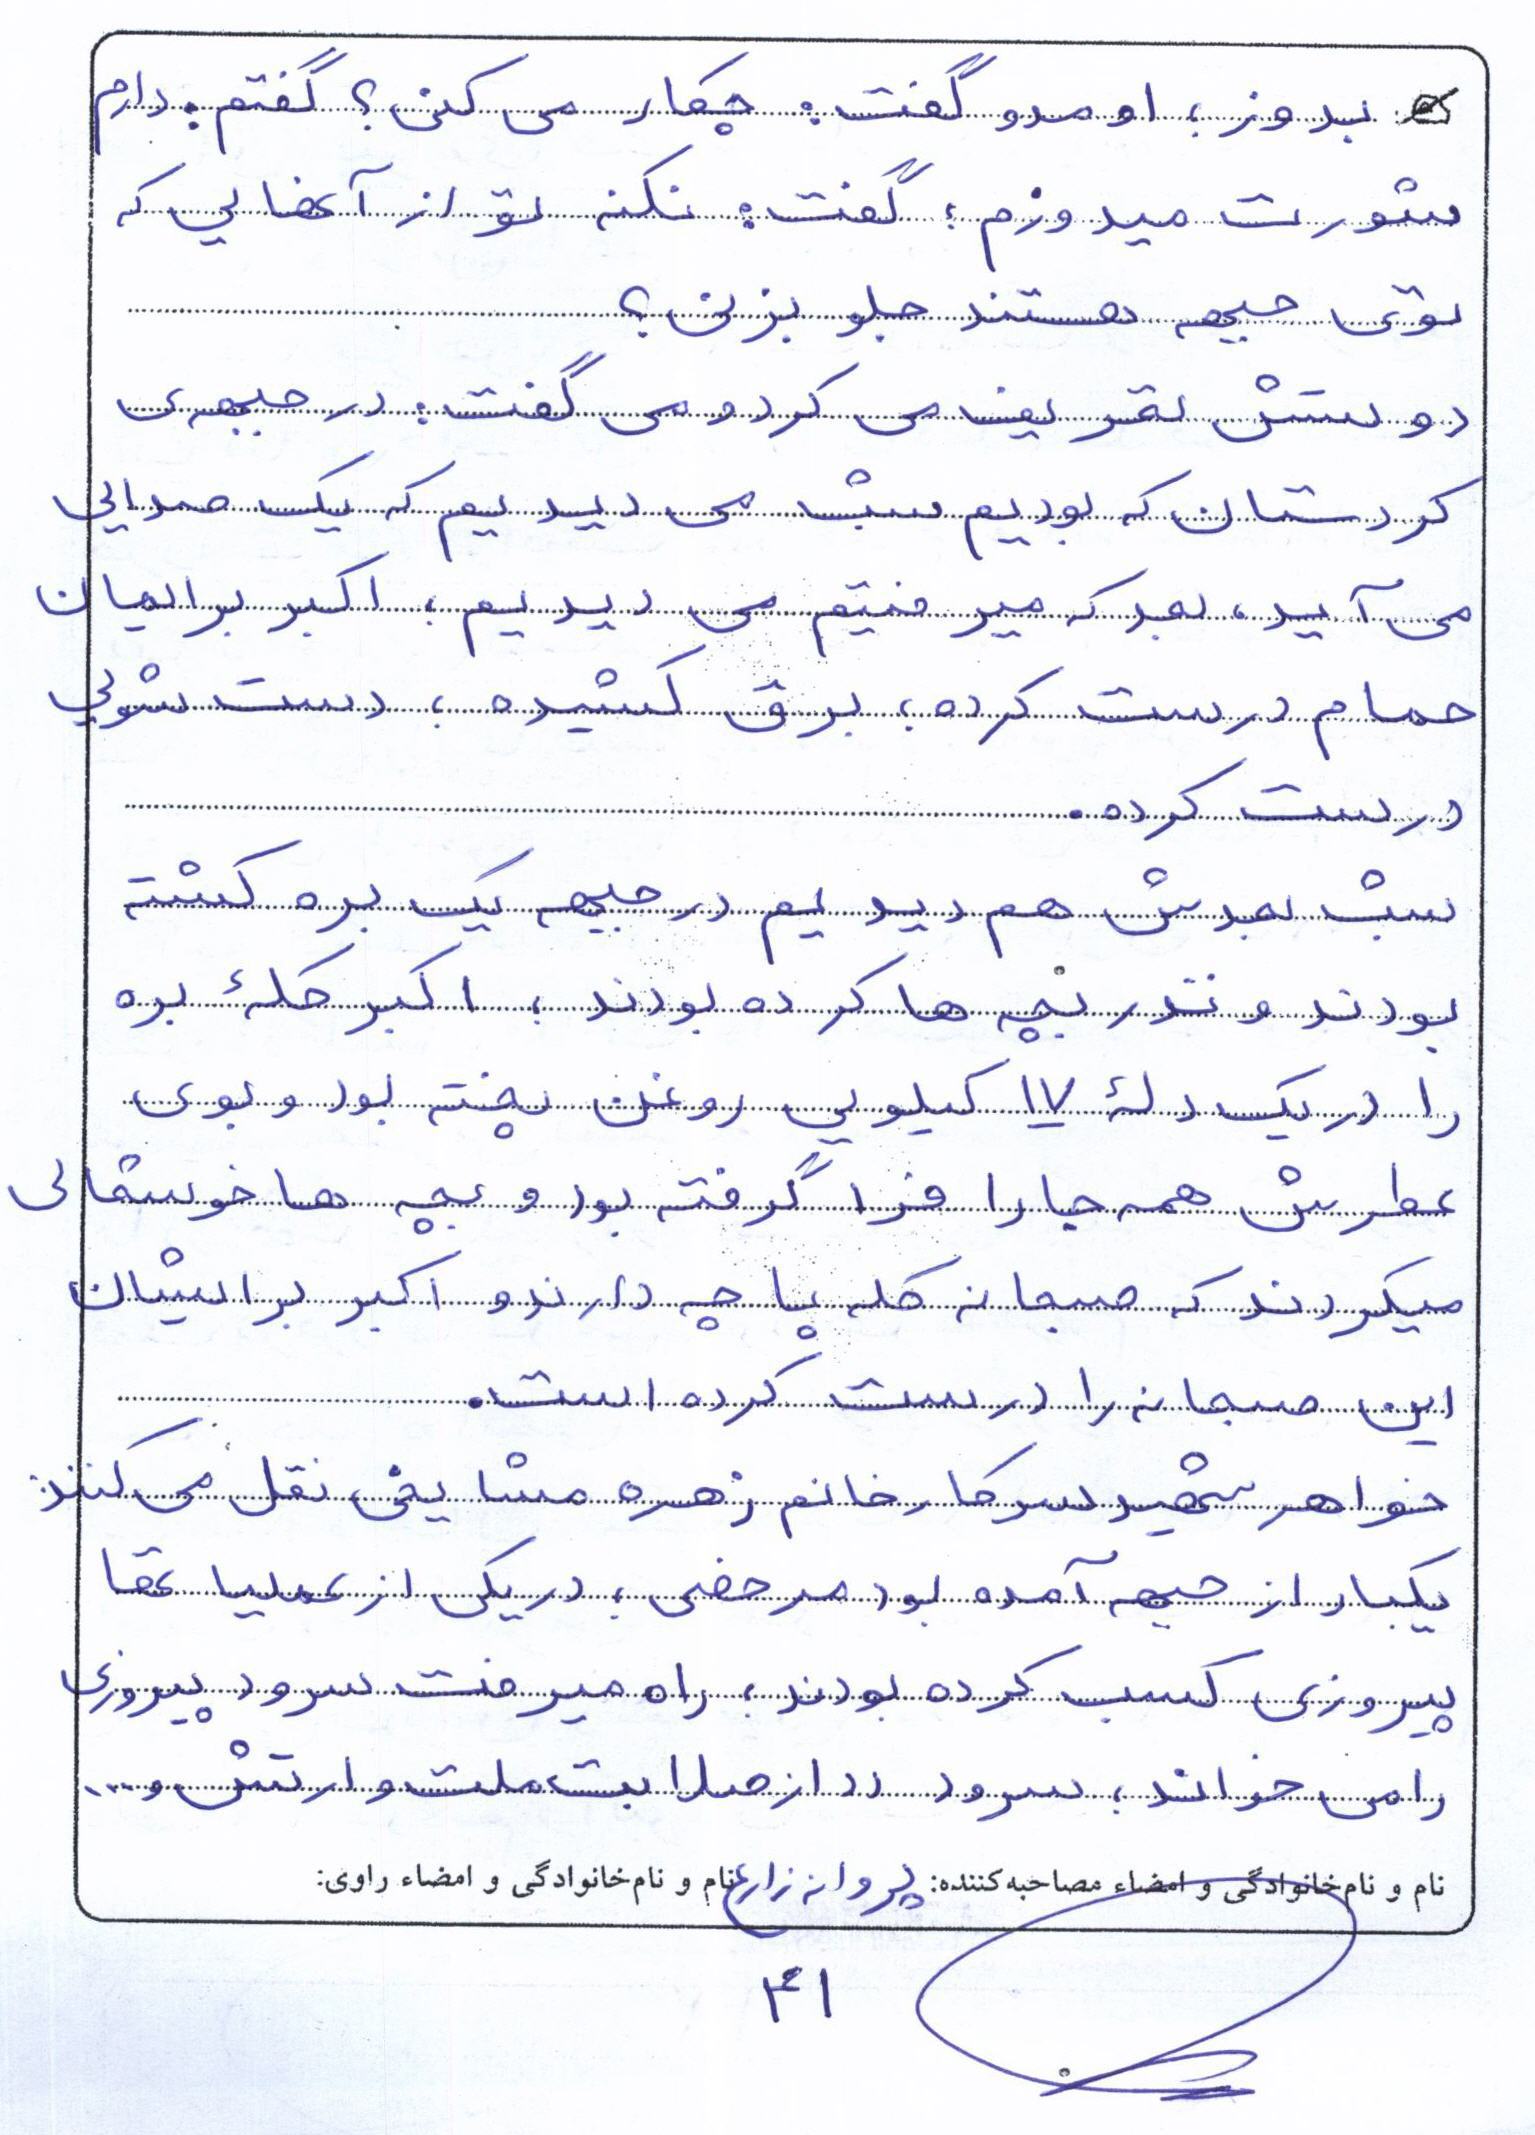 بدوز، اومدو گفت: چیکار می کنی؟ گفتم: دارم
شورت میدوزم، گفت: نکنه تو از آنهایی که
توی جبهه هستند جلو بزنی؟
دوستش تعریف می کرد و می گفت: در جبهه ی
کردستان که بودیم شب می دیدیم که یک صدایی
می آید، بعد که میرفتیم می دیدیم، اکبر برایمان
حمام درست کرده، برق کشیده، دست شویی
درست کرده.
شب بعدش هم دیدیم در جبهه یک بره کشته
بودند و نذر بچه ها کرده بودند، اکبر کلهٔ بره
را در یک دلهٔ ۱۷ کیلویی روغن پخته بود و بوی
عطرش همه جا را فرا گرفته بود و بچه ها خوشحالی
میکردند که صبحانه کله پاچه دارند و اکبر برایشان
این صبحانه را درست کرده است.
خواهر شهید سرکار خانم زهره مشایخی نقل می کنند:
یکبار از جبهه آمده بود مرخصی، در یکی از عملیاتها
پیروزی کسب کرده بودند، راه میرفت سرود پیروزی
را می خواند، سرود رد از صلابت ملت و ارتش و...
نام و نام‌خانوادگی و امضاء مصاحبه‌کننده: پروانه زارع نام و نام‌خانوادگی و امضاء راوی:
۴۱